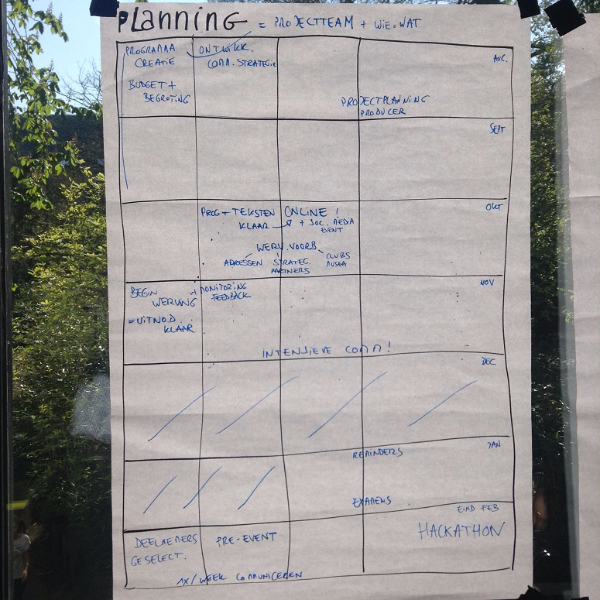 Planning = PROJECTTEAM + WIE-WAT
PROGRAMMA CREATIE
ONTWIKK. COMM. STRATEGIE
AUG.
BUDGET + BEGROTING
PROJECTPLANNING
PRODUCER
SEPT
OKT
PROG + TEKSTEN ONLINE!
KLAAR + SOC. MEDIA
EVENT
WERV. VOORB.
ADRESSEN STRATEG. PARTNERS CLUBS
NOV
BEGIN WERVING + MONITORING FEEDBACK
= UITNOD. KLAAR
INTENSIEVE COMM!
DEC
REMINDERS
JAN
EXAMENS
EIND FEB
DEELNEMERS GESELECT.
PRE-EVENT
HACKATHON
1X/WEEK COMMUNICEREN